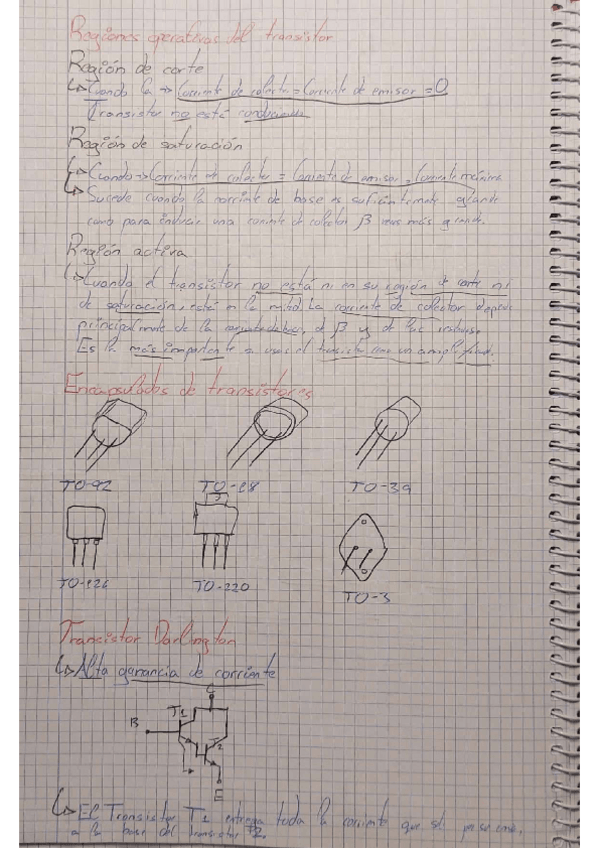 Regiones operativas del transistor
Región de corte
Cuando la → Corriente de colector = Corriente de emisor = 0
Transistor no está conduciendo
Región de saturación
Cuando → Corriente de colector = Corriente de emisor = Corriente máxima
Sucede cuando la corriente de base es suficientemente grande
como para inducir una corriente de colector β veces más grande.
Región activa
Cuando el transistor no está ni en su región de corte ni
de saturación, está en la mitad. La corriente de colector depende
principalmente de la corriente de base, el β y de las
Es la más importante a usar el transistor como un amplificador.
Encapsulados de transistores
TO-92 TO-18 TO-39
TO-126 TO-220 TO-3
Transistor Darlington
Alta ganancia de corriente
C
B T1
T2
E
El Transistor T1 entrega toda la corriente que
a la base del transistor T2.